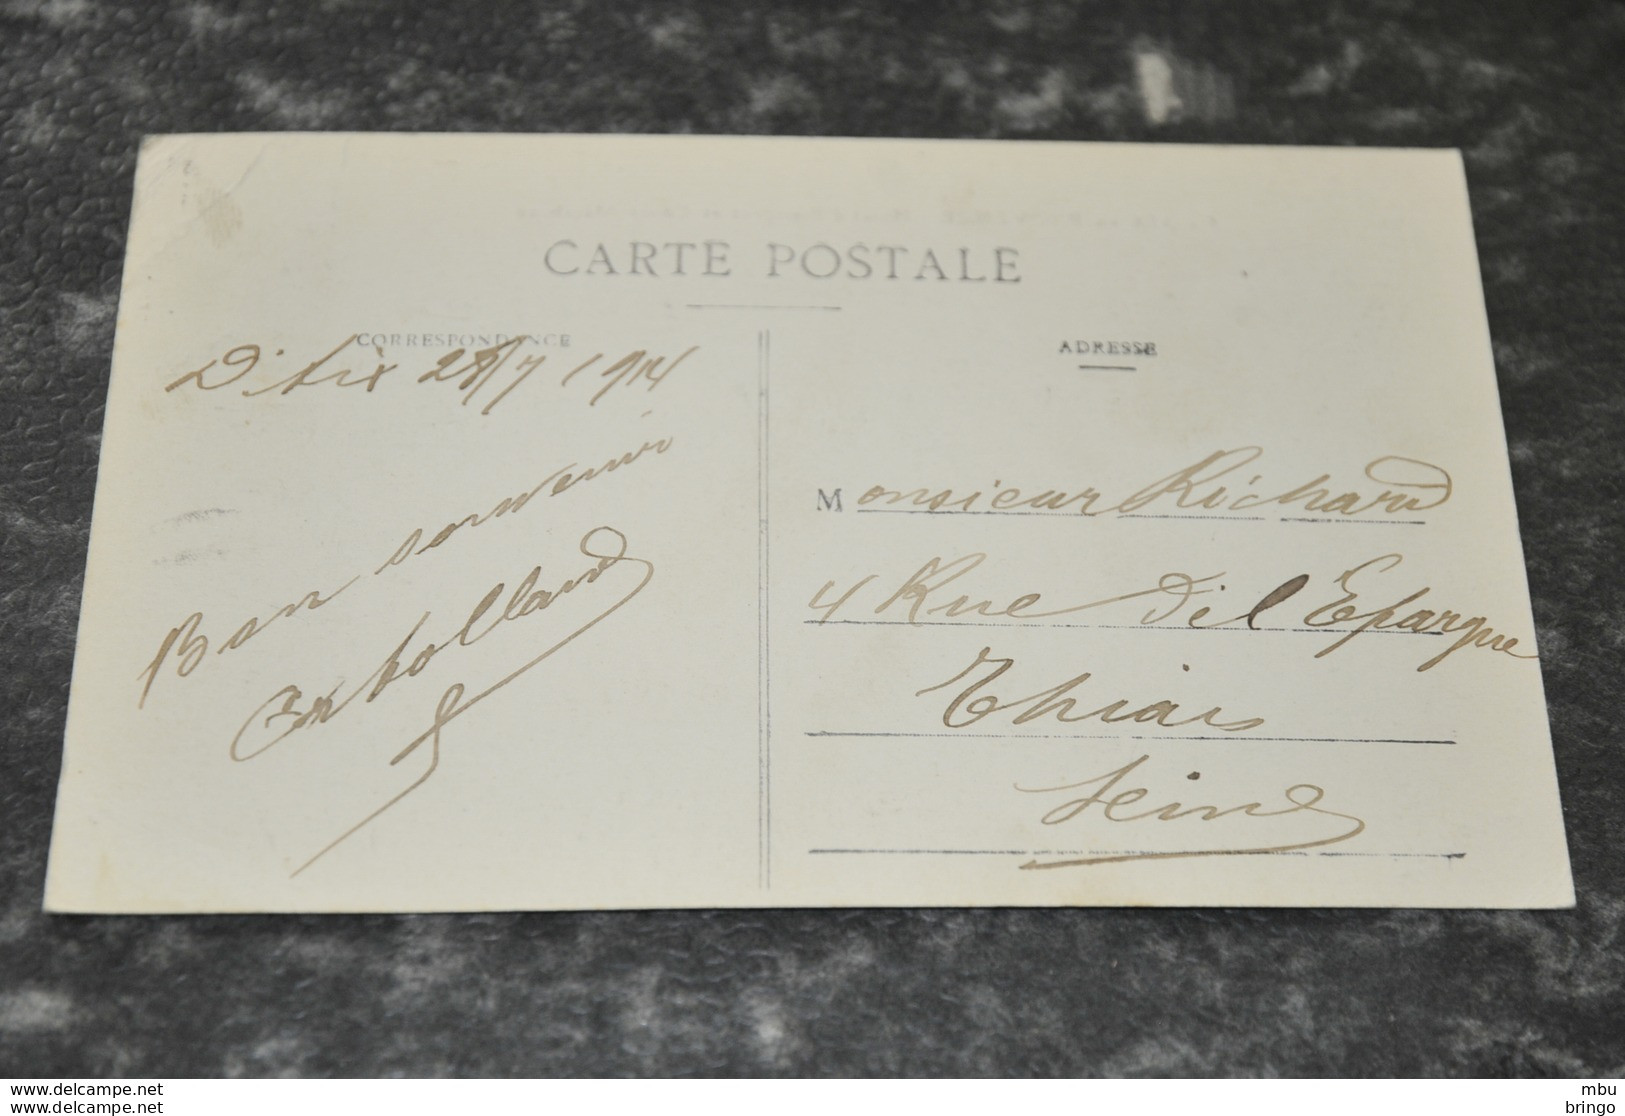 CARTE POSTALE
CORRESPONDANCE
28/7 1914
Bon souvenir
ADRESSE
Monsieur Richard
4 Rue de l'Epargne
Thiais
Seine
www.delcampe.net
www.delcampe.net
mbu
bringo